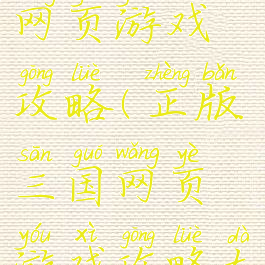 网页游戏
gōng lüè zhèng bǎn
攻略(正版
sān guó wǎng yè
三国网页
yóu xì gōng lüè dà
游戏攻略大